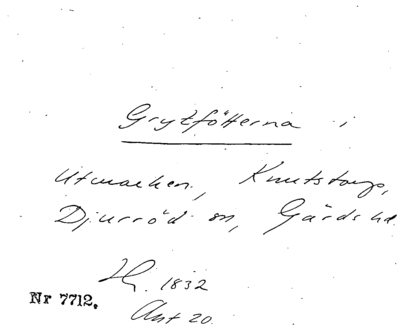 Grytfötterna i
Utmarken, Knutstorp,
Djurröd sn, Gärds hd.
H. 1832
Nr 7712.
Akt 20.